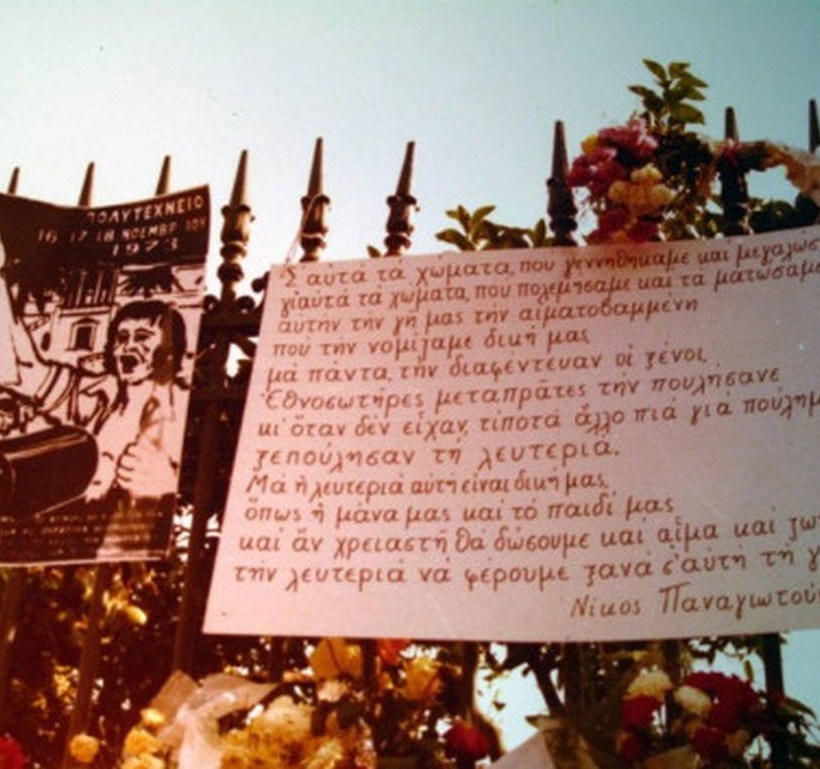 ΠΟΛΥΤΕΧΝΕΙΟ
16 17 18 ΝΟΕΜΒΡΙΟΥ
1973
Σ' αὐτά τά χώματα, που γεννηθήκαμε και μεγαλώσ
γι' αὐτά τά χώματα, που πολεμήσαμε και τά ματώσαμε
αὐτήν τήν γῆ μας τήν αἱματοβαμμένη
πού τήν νομίζαμε δική μας
μά πάντα, τήν διαφέντευαν οἱ ξένοι,
Ἐθνοσωτῆρες μεταπράτες τήν πουλήσανε
κι' ὅταν δέν εἶχαν, τίποτά ἄλλο πιά γιά πούλημ
ξεπούλησαν τή λευτεριά.
Μά ἡ λευτεριά αὐτή εἶναι δική μας,
ὅπως ἡ μάνα μας καί τό παιδί μας
καί ἄν χρειαστῆ θά δώσουμε καί αἷμα καί ζω
τήν λευτεριά νά φέρουμε ξανά σ' αὐτή τή γ
Νίκος Παναγιωτού